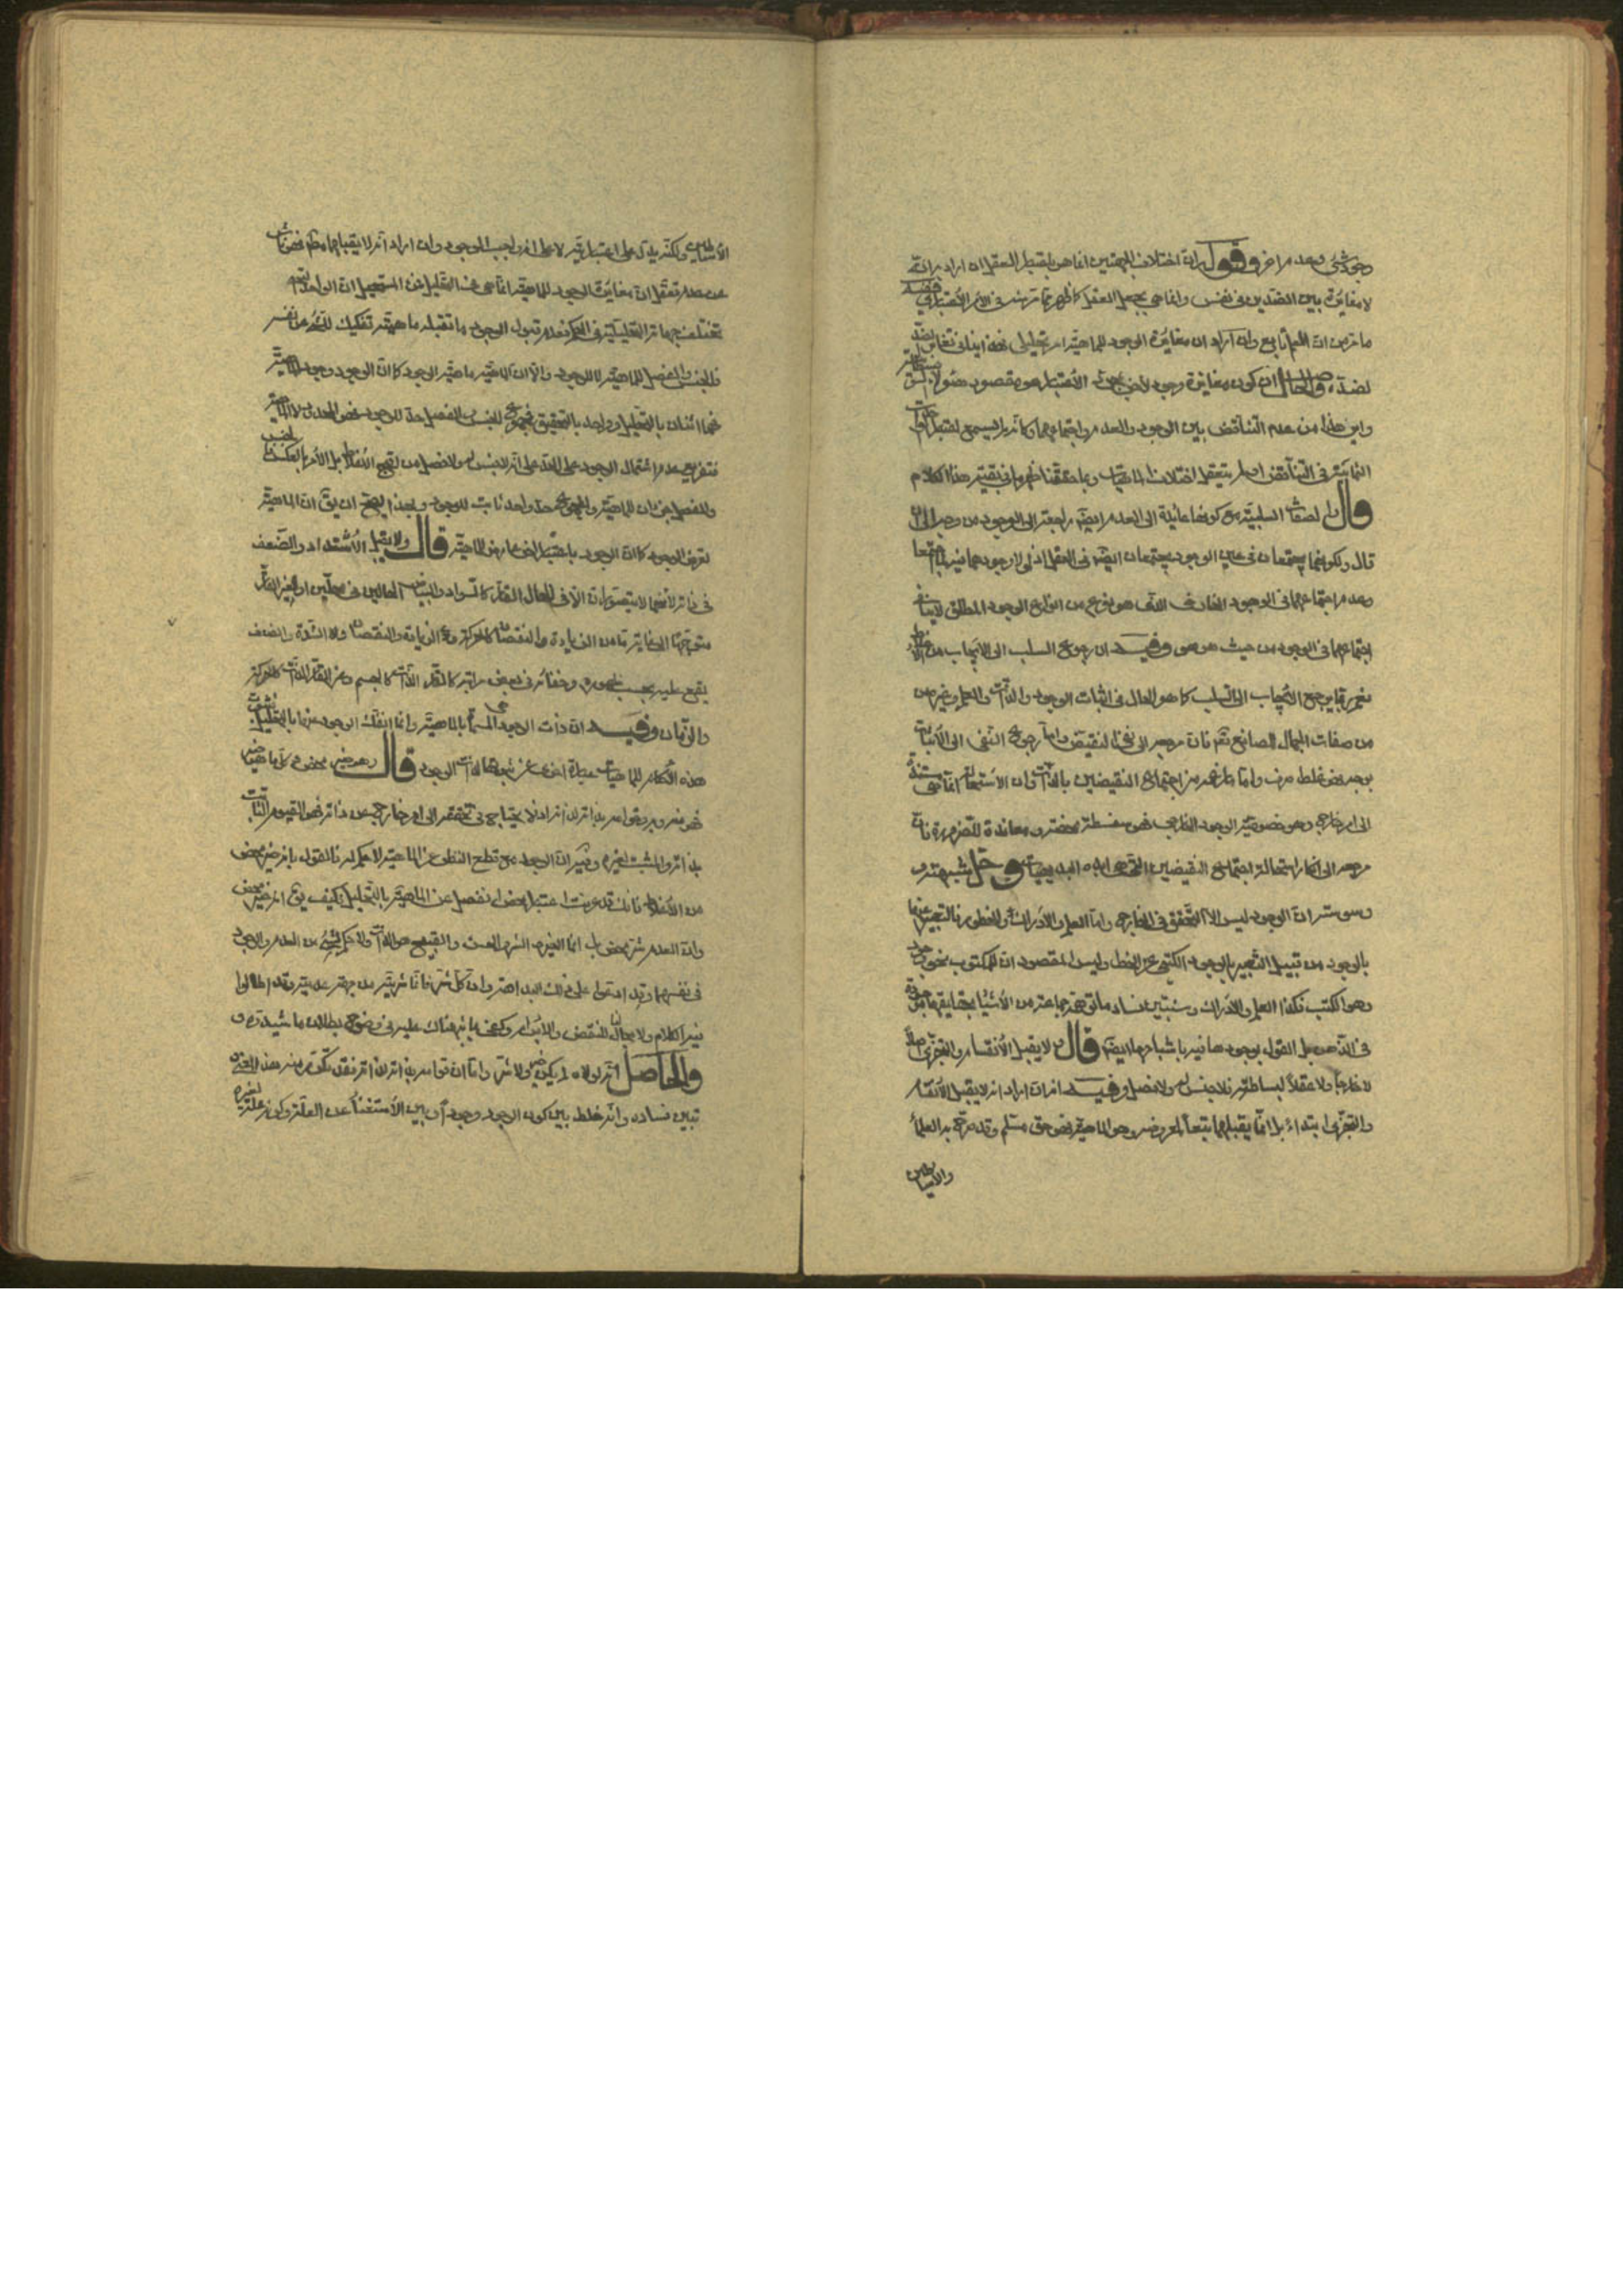 وجود شئ وعدم اخر وقوله ان اختلاف الجهتين انما هو باعتبار العقل ان اراد به انه
لا مغايرة بين الضدين في نفس وانما هي بجعل العقل كما ظهر مما مر منه في الأمر الاعتباري ففيه
ما مر من ان العلم تابع وان اراد ان مغايرة الوجود للماهية امر تحليلي فهذا
لضده والحاصل ان كون مغايرة وجود لاخر بمحض الاعتبار هو مقصود هؤلاء
واين هذا من عدم التناقض بين الوجود والعدم واجتماعهما وكانه لم يسمع اعتبار
في التناقض او لم يتعقل اختلاف الماهيات وبما حققنا ظهر ما في بقية هذا الكلام
قال والصفات السلبية مع كونها عائدة الى العدم ايضا راجعة الى الوجود من وجه الى ان
قال ولكونهما يجتمعان في عين الوجود يجتمعان ايضا في العقل اذ لولا وجودهما فيه لما اجتمعا
وعدم اجتماعهما في الوجود الخارجي الذي هو نوع من انواع الوجود المطلق لا ينافي
اجتماعهما في الوجود من حيث هو هو وفيه ان رجوع السلب الى الايجاب من
نعم ربما يرجع الايجاب الى السلب كما هو الحال في اثبات الوجود والذات والعلم وغيره من
صفات الجمال للصانع تعم فان مرجعه الى نفي النقيض واما رجوع النفي الى الاثبات
بوجه فهو غلط صرف واما ما زعمه من اجتماع النقيضين بالذات وان الاستحالة انما هي مستندة
الى امر خارجي وهو خصوصية الوجود الخارجي فهو سفسطة محضة ومعاندة للضرورة فان
مرجعه الى انكار استحالة اجتماع النقيضين التي هي ابده البديهيات وحل شبهته
وسوسته ان الوجود ليس الا التحقق في الخارج واما العلم والادراك والخطور فالتعبير عنها
بالوجود من قبيل التعبير بالوجود الكتبي عن الخط وليس المقصود ان للمكتوب نحو وجود
وهو الكتب فكذا العلم والادراك وسنبين فساد ما توهمه جماعة من ان الأشياء بحقايقها موجودة
في الذهن بل القول بوجودها فيه باشباحها ايضا قال ولا يقبل الانقسام والتجزي اصلا
لا خارجا ولا عقلا لبساطته فلا جنس له ولا فصل وفيه انه ان اراد انه لا يقبل الانقسام
والتجزي ابتداء بل انما يقبلهما تبعا لمعروضه وهو الماهية فهو حق مسلم وقد صرح به العلماء
والأساطين
الأساطين ولكنه يدل على اعتباريته لا على انه واجب الوجود وان اراد انه لا يقبلهما مطلقا فهو ناش
عن عدم تعقل ان مغايرة الوجود للماهية انما هي عند التحليل فمن المستحيل ان الواحد
تختلف جهاته التحليلية في الحكم فعدم قبول الوجود ما تقبله ماهيته تفكيك للشئ عن نفسه
فالجنس والفصل للماهية لا للوجود والا ان الماهية ماهية الوجود كما ان الوجود وجود الماهية
فهما اثنان بالتحليل وواحد بالتحقيق فمجموع الجنس والفصل حد للوجود فهو المحدود لا الماهية
فتفريع عدم اشتمال الوجود على الحد على انه لا جنس له ولا فصل من اقبح الاغلاط بل الأمر بالعكس
والفصل جزءان للماهية والمجموع حد واحد ثابت للوجود وبهذا يصح ان يق ان الماهية
تعرض الوجود كما ان الوجود باعتبار اخر عارض للماهية قال ولا يقبل الاشتداد والضعف
في ذاته لأنهما لا يتصوران الا في الحال القار كالسواد والبياض الحالين في محلين او الغير القار
متوجها الى غاية ما من الزيادة والنقصان كالحركة والزيادة والنقصان والشدة والضعف
يقع عليه بحسب ظهوره وخفائه في بعض مراتبه كالقار الذات كالجسم وغير القار الذات كالحركة
والزمان وفيه ان ذات الوجود المسماة بالماهية وانما انفك الوجود عنها بالتحليل
هذه الاحكام للماهيات عبارة اخرى عن ثبوتها لذات الوجود قال وهو خير محض وكل ما هو خير
فهو منه وبه وقوامه بذاته لذاته اذ لا يحتاج في تحققه الى امر خارج عن ذاته فهو القيوم الثابت
بذاته والمثبت لغيره وفيه ان الوجود مع قطع النظر عن الماهية لا حكم له فالقول بانه خير محض
من الاغلاط فانك قد عرفت اعتبار محض انفصل عن الماهية بالتحليل فكيف يق انه خير محض
وان العدم شر محض بل انما الخير والشر والحسن والقبيح هو الذات ولا حكم لشئ من العدم والوجود
في نفسهما وقد ادعوا على ذلك البداهة وان كل شر فانما شريته من جهة عدميته وقد اطالوا
فيه الكلام ولا مجال لنا للنقض والابرام وكفى ما نبهناك عليه في وضوح بطلان ما شيدوه
والحاصل انه لولاه لم يكن خير ولا شر واما ان قوامه بذاته لذاته فقد تكرر منه هذا
تبين فساده وانه خلط بين كون الوجود وجودا وبين الاستغناء عن العلة وكونه علة لغيره